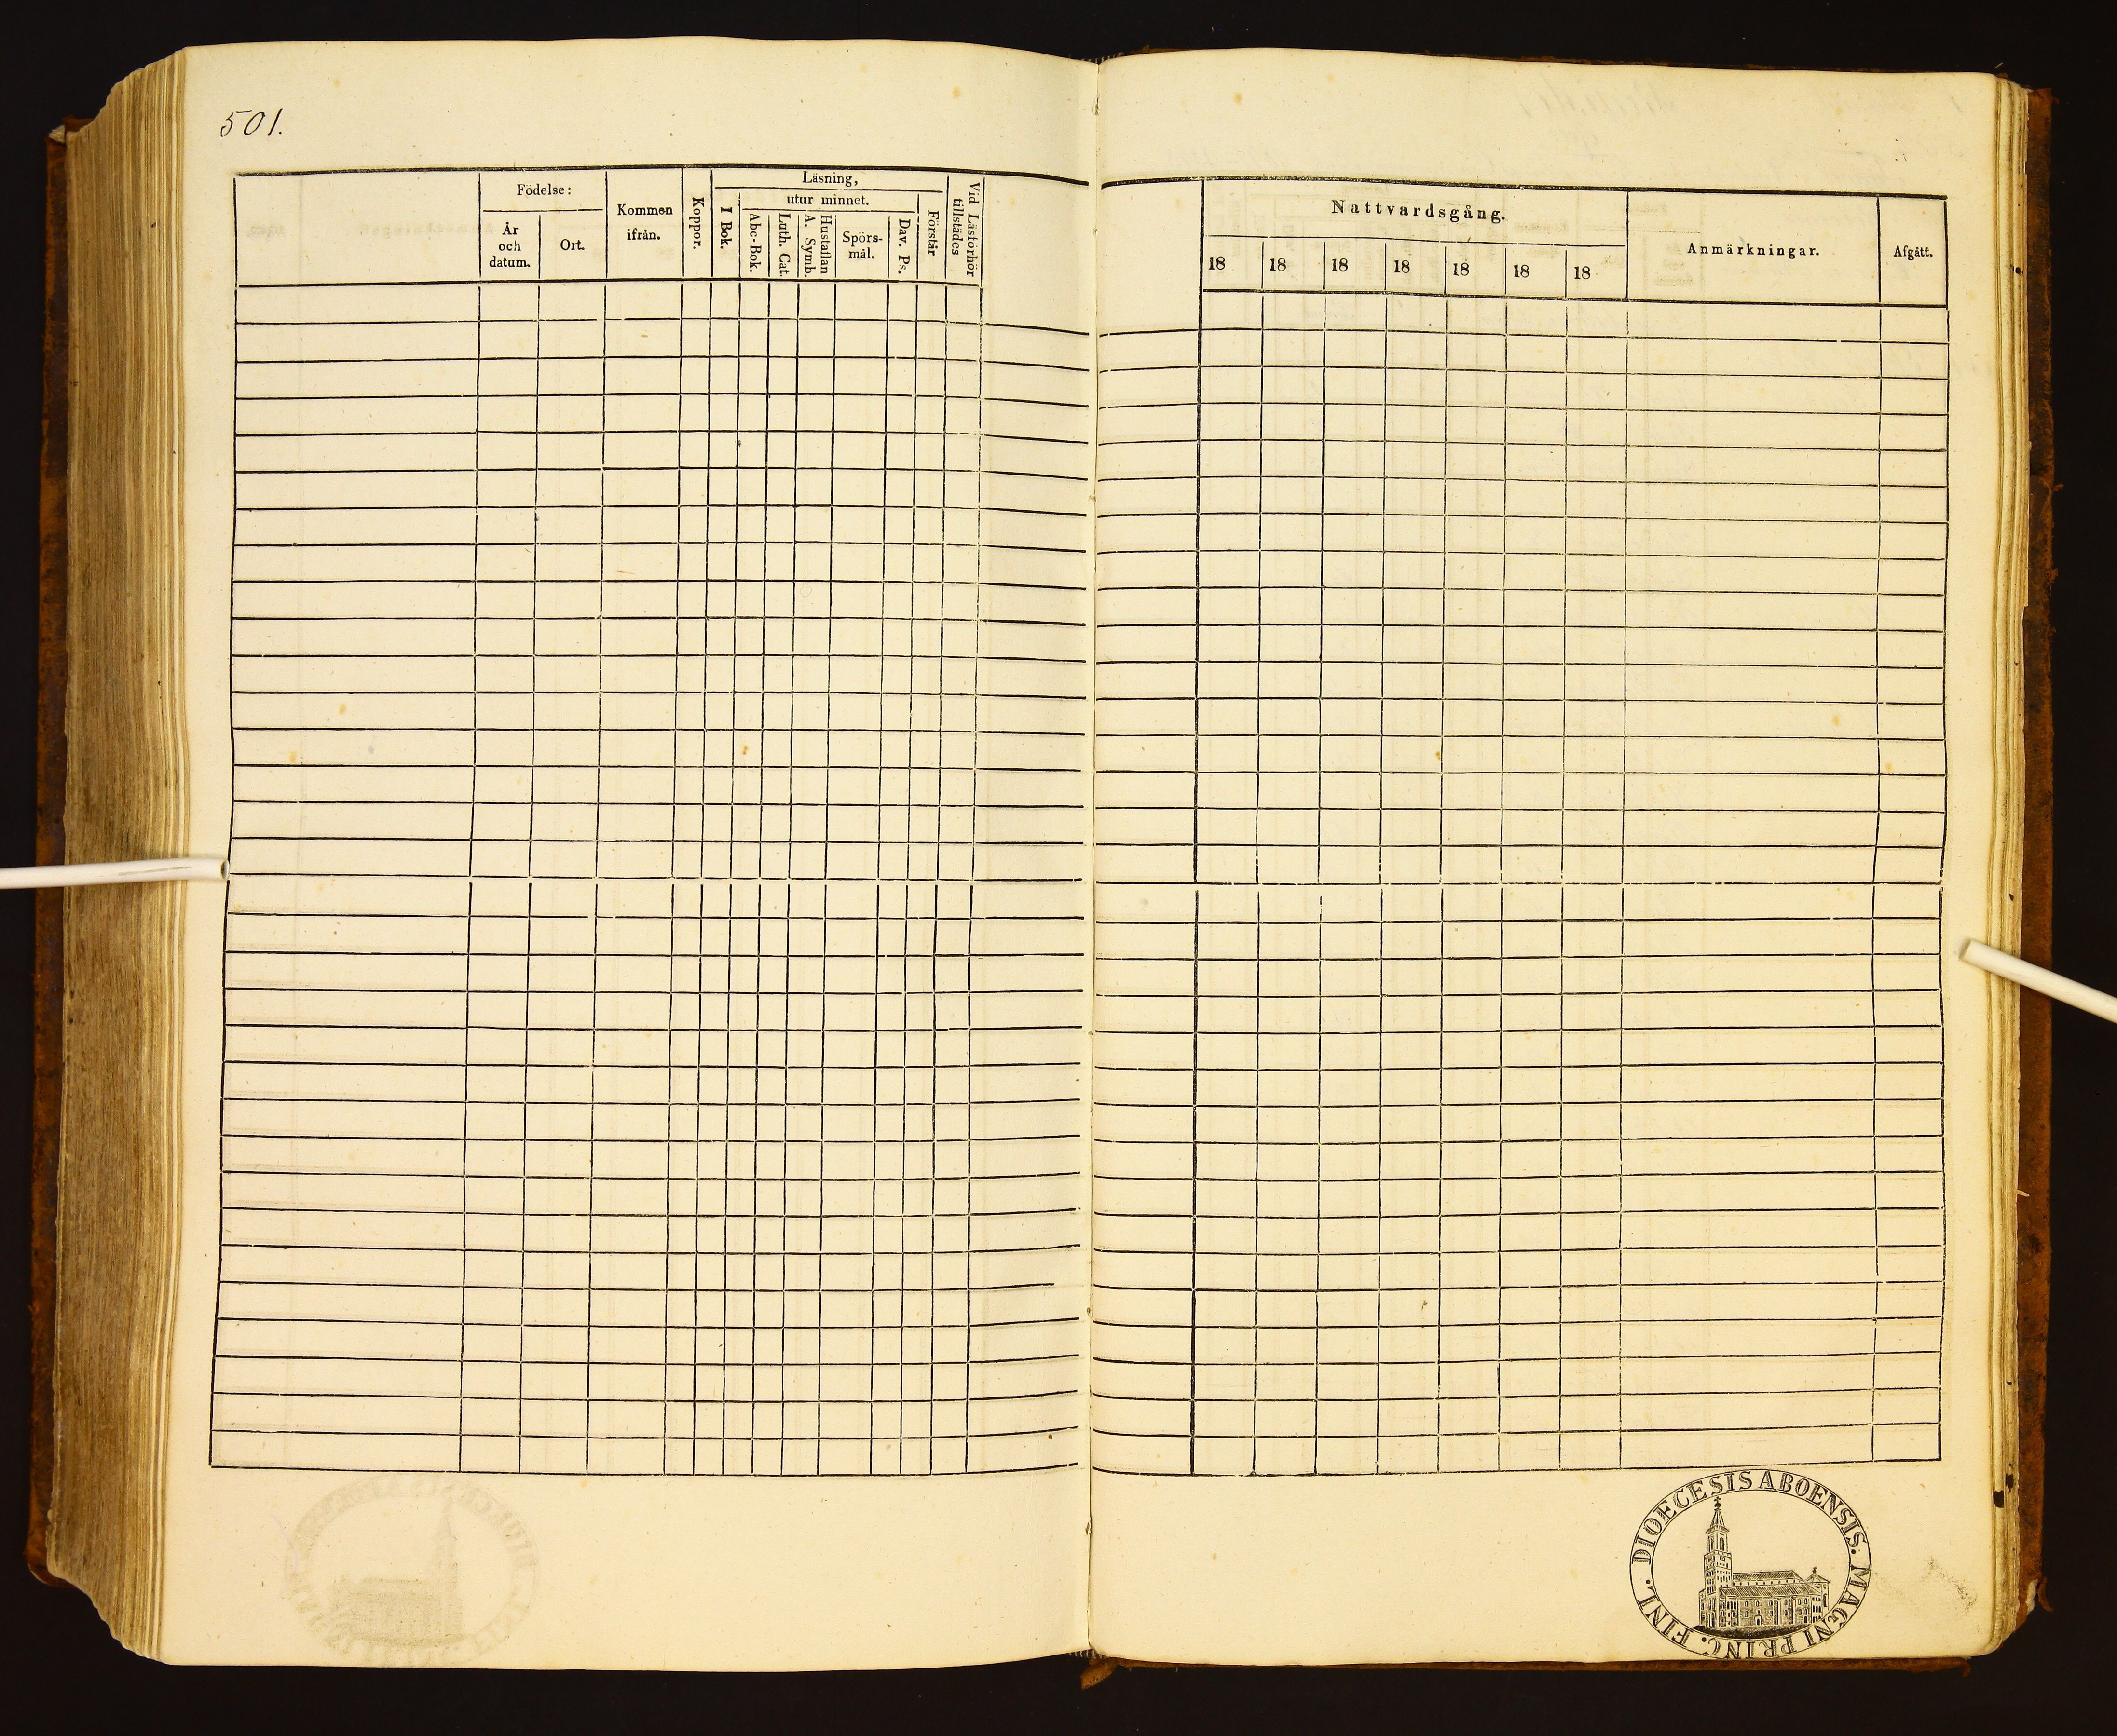 501.
Födelse:
År
och
datum.
Ort.
Kommen
ifrån.
Koppor.
Läsning,
I Bok.
utur minnet.
Abc-Bok.
Luth. Cat.
Hustaflan
A. Symb.
Spörs-
mål.
Dav. Ps.
Förstår
Vid Läsförhör
tillstädes
Nattvardsgång.
18 18 18 18 18 18 18
Anmärkningar.
Afgått.
DIOECESIS ABOENSIS. MAGNI PRINC. FINL.